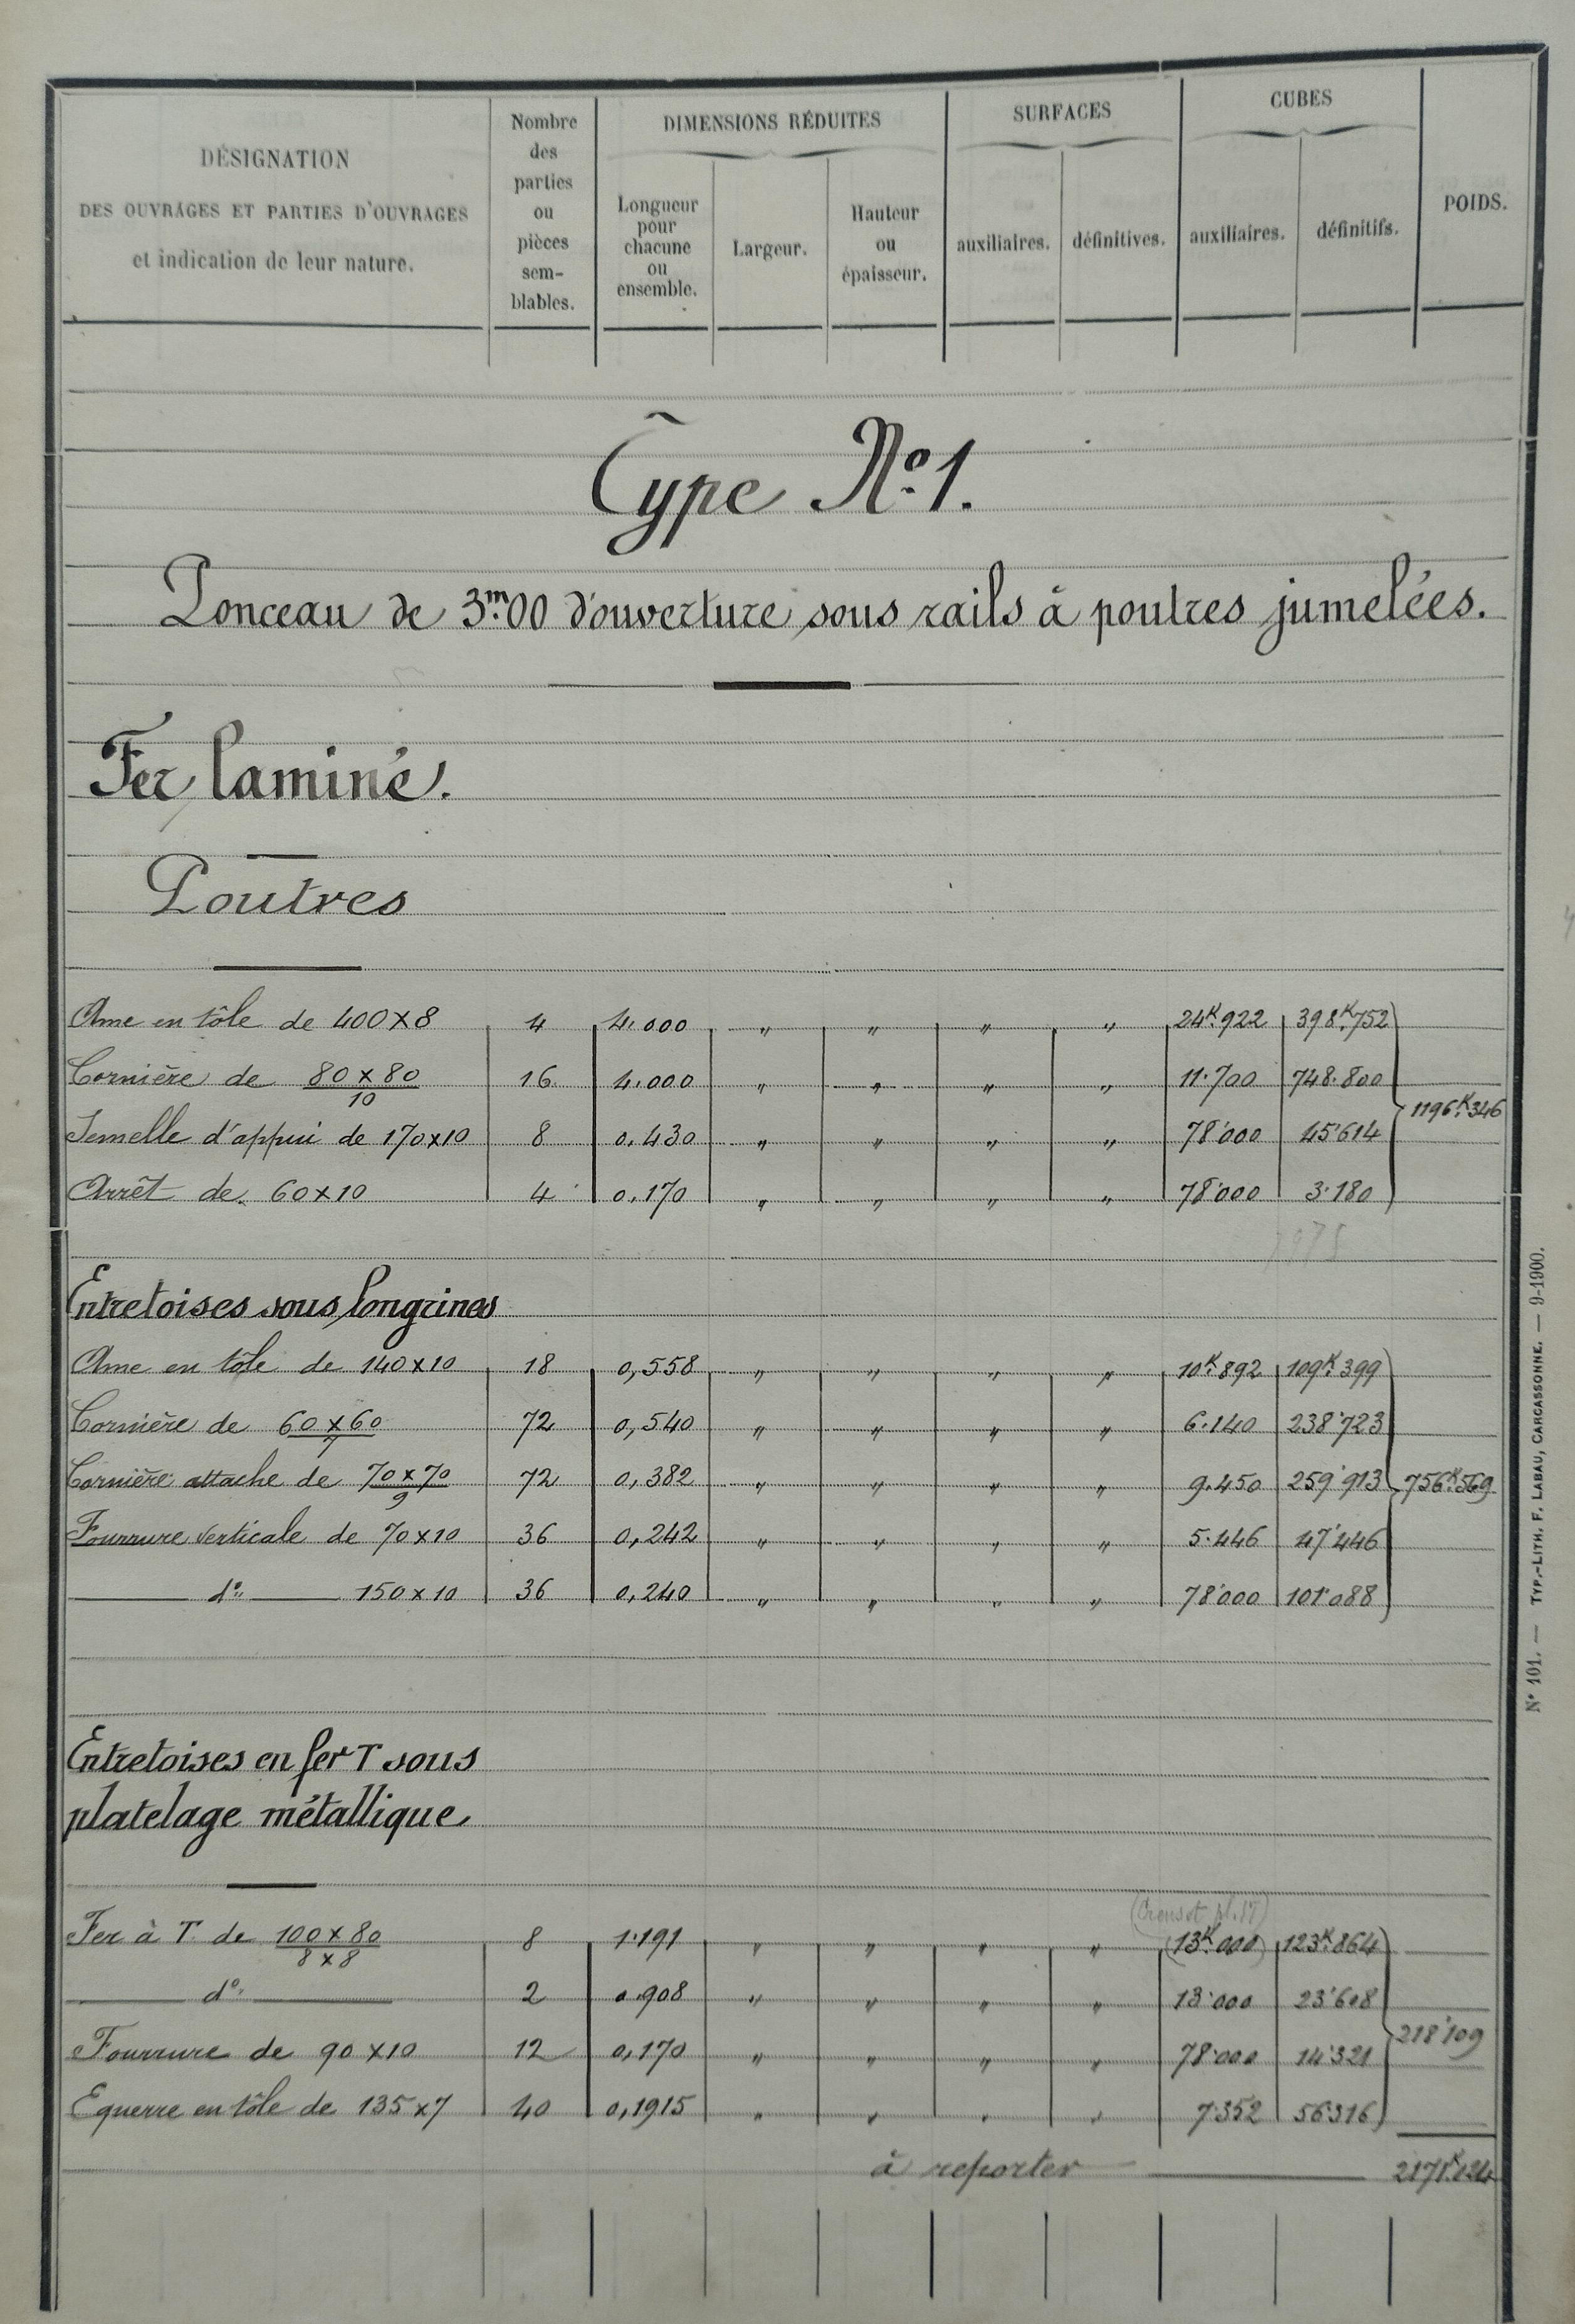 DÉSIGNATION
DES OUVRAGES ET PARTIES D'OUVRAGES
et indication de leur nature.
Nombre
des
parties
ou
pièces
sem-
blables.
DIMENSIONS RÉDUITES
Longueur
pour
chacune
ou
ensemble.
Largeur.
Hauteur
ou
épaisseur.
SURFACES
auxiliaires.
définitives.
CUBES
auxiliaires.
définitifs.
POIDS.
Type No. 1.
Ponceau de 3m.00 d'ouverture sous rails à poutres jumelées.
Fer laminé.
Poutres
Ame en tôle de 400×8 4 4.000 " " " " 24K.922 398K.752
Cornière de 80×80/10 16 4.000 " " " " 11.700 748.800
1196K.346
Semelle d'appui de 170×10 8 0.430 " " " " 78.000 45.614
Arrêt de 60×10 4 0.170 " " " " 78.000 3.180
Entretoises sous longrines
Ame en tôle de 140×10 18 0,558 " " " " 10K.892 109K.399
Cornière de 60×60/7 72 0,540 " " " " 6.140 238.723
Cornière attache de 70×70/9 72 0,382 " " " " 9.450 259.913 756K.569
Fourrure verticale de 70×10 36 0,242 " " " " 5.446 47.446
do. 150×10 36 0,240 " " " " 78.000 101.088
Entretoises en fer T sous
platelage métallique
(Creusot pl. 37)
Fer à T de 100×80/8×8 8 1.191 " " " " (13K.000) 123K.864
do. 2 0.908 " " " " 13.000 23.608
218.109
Fourrure de 90×10 12 0,170 " " " " 78.000 14.321
Equerre en tôle de 135×7 40 0,1915 " " " " 7.352 56.316
à reporter 2171K.124
No 101. — TYP.-LITH. F. LABAU, CARCASSONNE. — 9-1900.